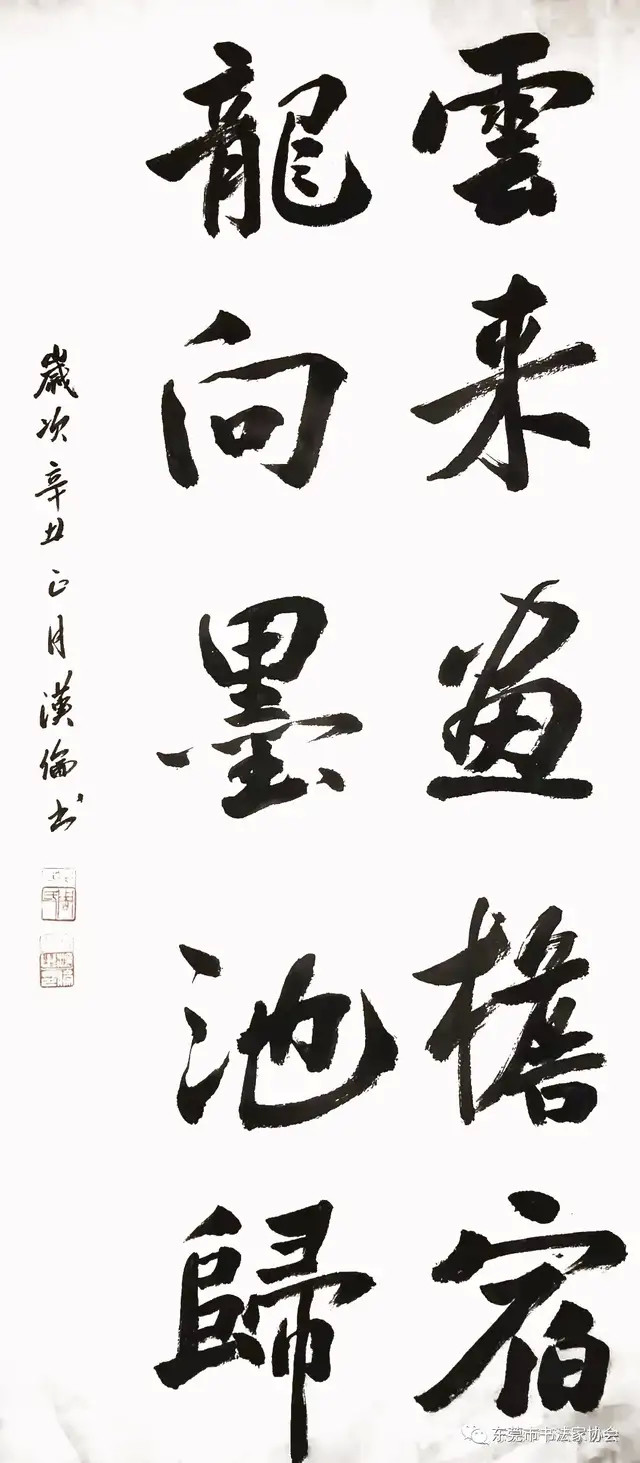 雲来畫檐宿
龍向墨池歸
歲次辛丑正月漢倫书
东莞市书法家协会